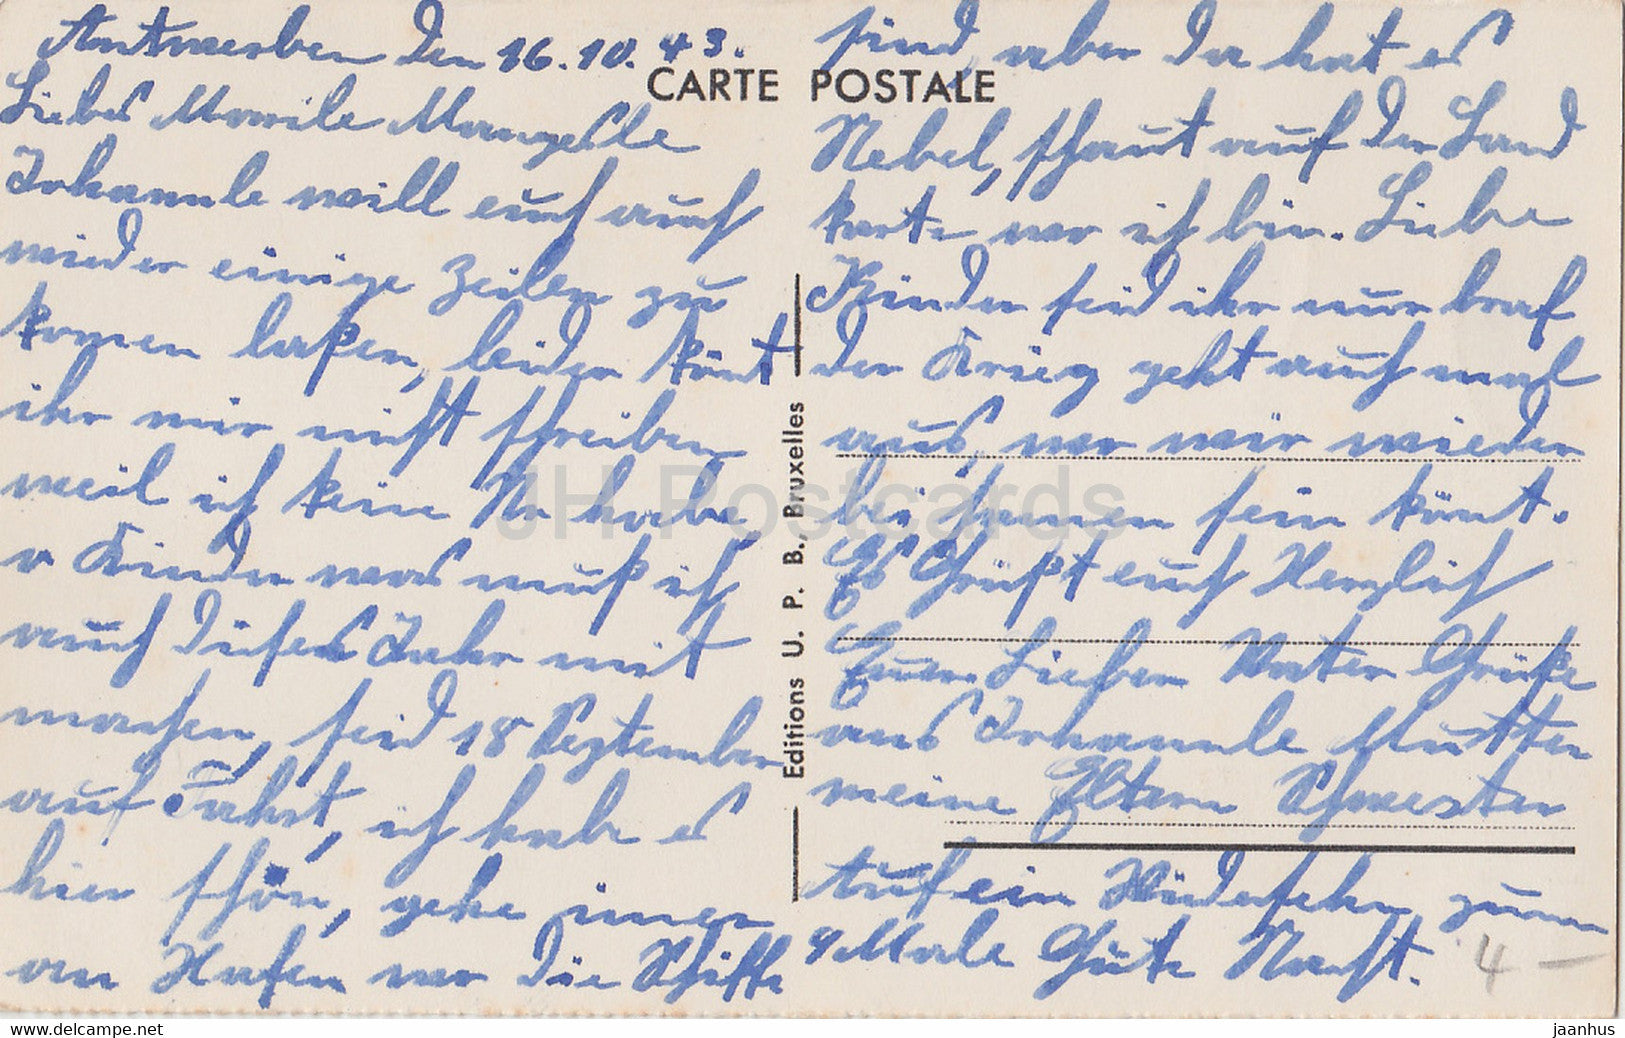 Antwerben den 16.10.43.
Liebes Marile Mangelle
Johannle will euch auch
wieder einige Zeilen zu
komen laßen, leider könt
ihr mir nicht schreiben
weil ich keine Nr habe,
o Kinder was muß ich
auch dises Jahr mit
machen, seid 18 September
auf Fahrt, ich habe es
hier schön, gehe imer
an Hafen wo die Schiffe
sind, aber da hat es
Nebel, schaut auf der Land
karte wo ich bin. Liebe
Kinder seid ihr nur braf
der Krieg geht auch mal
aus, wo wir wieder
bei samen sein könt.
Es Grüßt euch Herzlich
Euer Lieber Vater Grüße
aus Johannle Mutter
meine Eltern Schwester
Auf ein Widersehn zum
4 Male Gute Nacht.
CARTE POSTALE
Editions U. P. B. Bruxelles
4 –
JH Postcards
www.delcampe.net
jaanhus